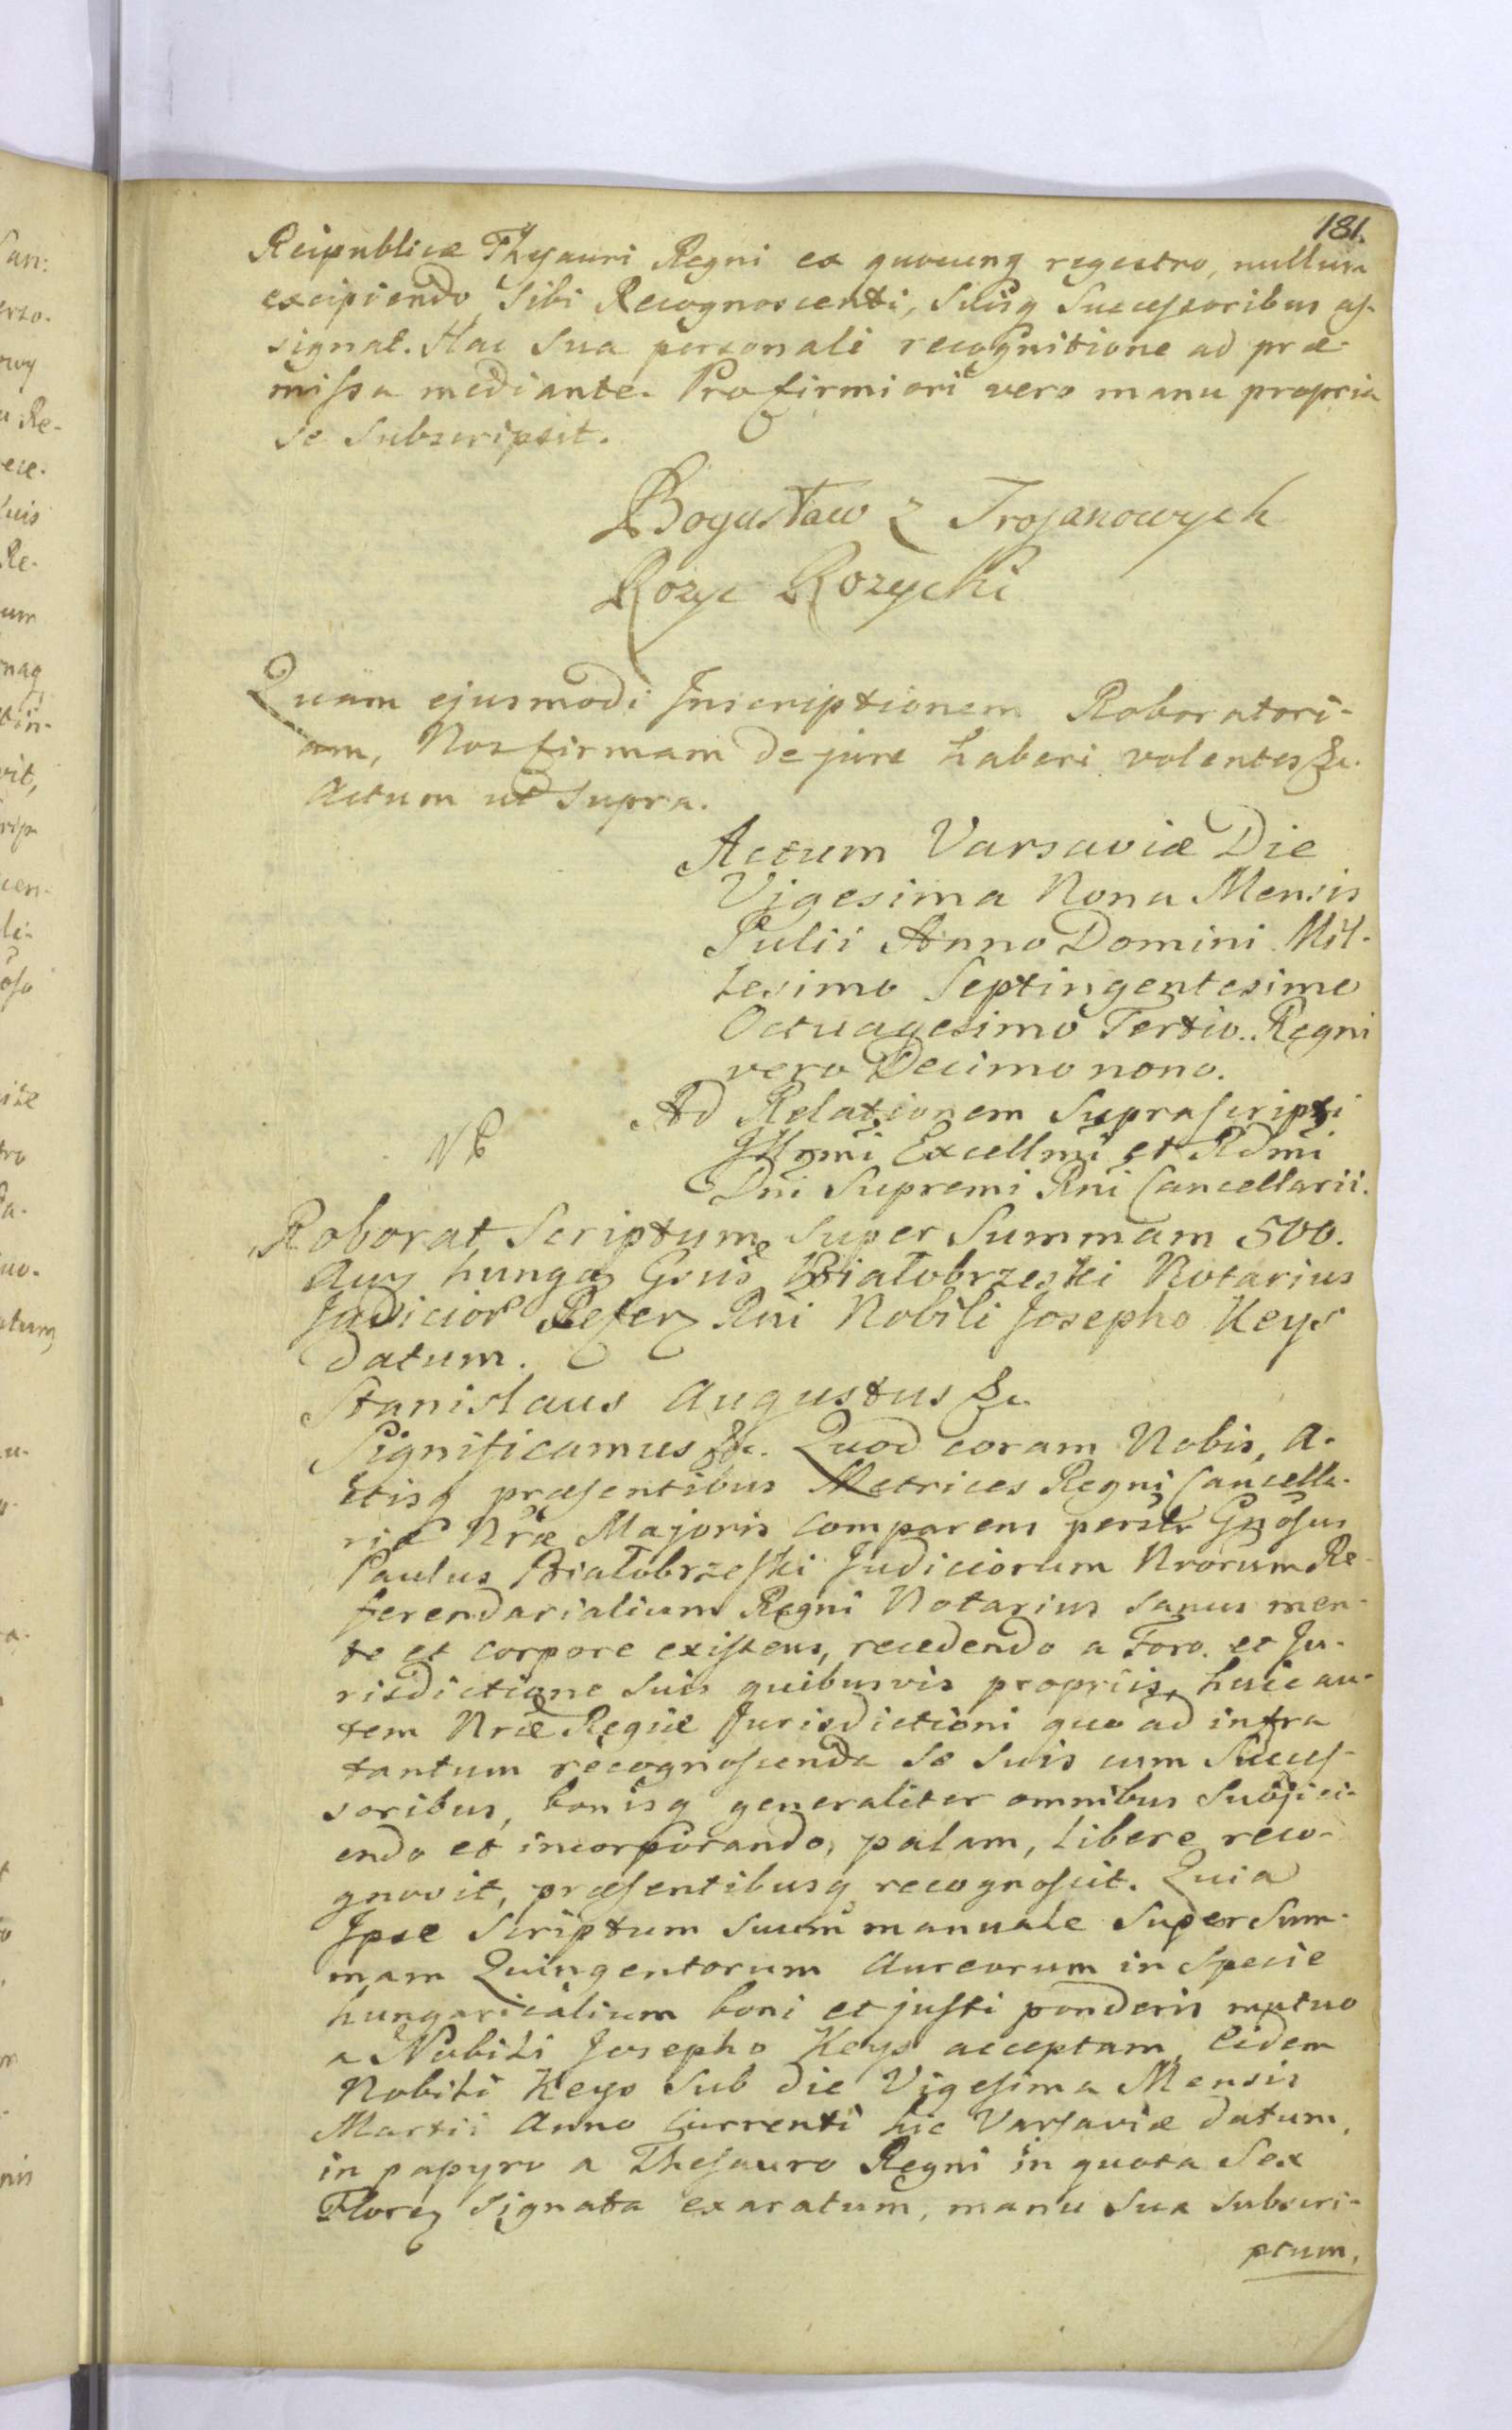 181.
Reipublicæ Thesauri Regni ex quocunq regestro, nullum
excipiendo sibi Recognoscenti, suisq Successoribus as-
signat. Hac sua personali recognitione ad præ-
missa mediante. Pro firmiori vero manu propria
se subscripsit.
Bogusław z Trojanowych
Rozyc Rozycki
Quam ejusmodi Inscriptionem Roboratori-
am, Nos firmam de jure haberi volentes &c.
Actum ut supra.
Actum Varsaviæ Die
Vigesima Nona Mensis
Julii Anno Domini Mil-
lesimo Septingentesimo
Octuagesimo Tertio. Regni
vero Decimo nono.
Ad Relationem suprascripti
Illmi Excellmi et Rdmi
Dni Supremi Rni Cancellarii.
Roborat Scriptum super Summam 500.
Aur hunga Gsus Białobrzeski Notarius
Judicior Refer Rni Nobili Josepho Keys
datum.
Stanislaus Augustus &c.
Significamus &c. Quod coram Nobis, A-
ctisq præsentibus Metrices Regni Cancella-
riæ Nræ Majoris comparens persltr Gnosus
Paulus Białobrzeski Judiciorum Nrorum Re-
ferendarialium Regni Notarius sanus men-
te et corpore existens, recedendo a Foro et Ju-
risdictione suis quibusvis propriis, huic au-
tem Nræ Regiæ Jurisdictioni quo ad infra
tantum recognoscenda se suis cum Succes-
soribus, bonisq generaliter omnibus subjici-
endo et incorporando, palam, libere reco-
gnovit, præsentibusq recognoscit. Quia
Ipse Scriptum suum manuale super sum-
mam Quingentorum Aureorum in specie
hungaricalium boni et justi ponderis mutuo
a Nobili Josepho Keys acceptam, eidem
Nobili Keys sub die Vigesima Mensis
Martii Anno currenti hic Varsaviæ datum,
in papyro a Thesauro Regni in quota Sex
Flore signata exaratum, manu sua subscri-
ptum,